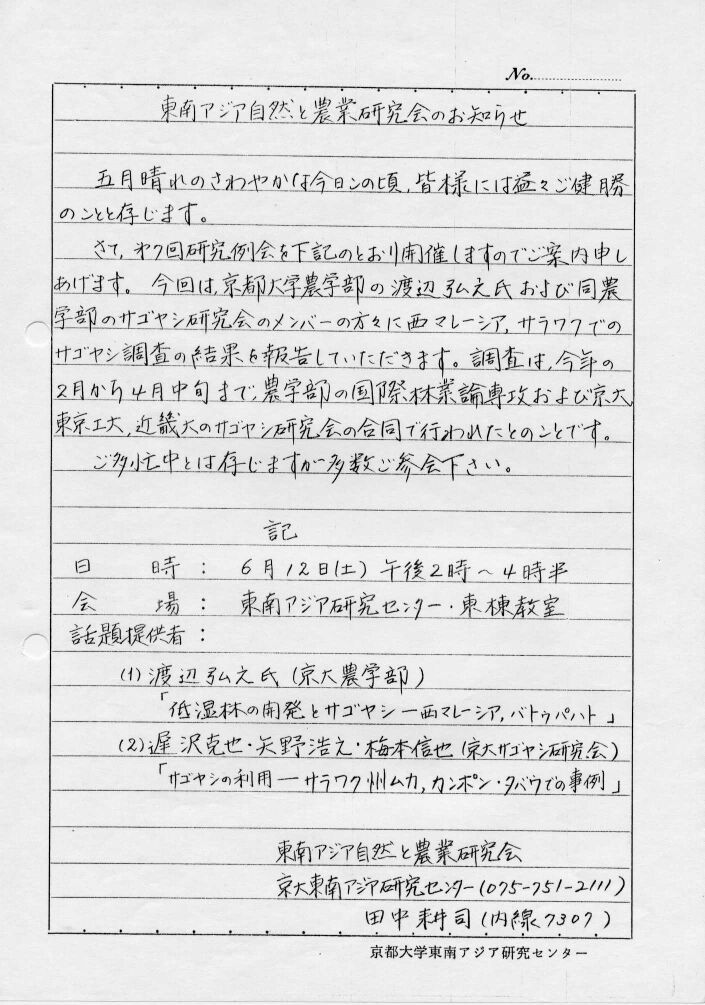 No.
東南アジア自然と農業研究会のお知らせ
五月晴れのさわやかな今日この頃,皆様には益々ご健勝
のことと存じます。
さて,第7回研究例会を下記のとおり開催しますのでご案内申し
あげます。今回は,京都大学農学部の渡辺弘之氏および同農
学部のサゴヤシ研究会のメンバーの方々に西マレーシア,サラワクでの
サゴヤシ調査の結果を報告していただきます。調査は,今年の
2月から4月中旬まで,農学部の国際林業論専攻および京大
東京工大,近畿大のサゴヤシ研究会の合同で行われたとのことです。
ご多忙中とは存じますが多数ご参会下さい。
記
日 時 : 6月12日(土) 午後2時~4時半
会 場 : 東南アジア研究センター・東棟教室
話題提供者 :
(1) 渡辺弘之氏 (京大農学部)
「低湿林の開発とサゴヤシ ー西マレーシア,バトゥパハト」
(2) 遅沢克也・矢野浩之・梅本信也 (京大サゴヤシ研究会)
「サゴヤシの利用 ― サラワク州ムカ,カンポン・タバウでの事例」
東南アジア自然と農業研究会
京大東南アジア研究センター (075-751-2111)
田中耕司 (内線7307)
京都大学東南アジア研究センター